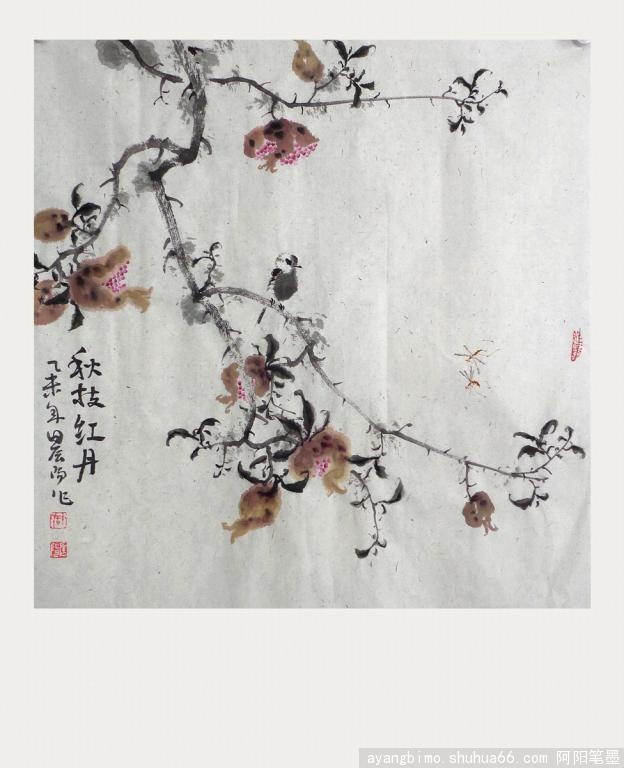 秋枝红丹
乙未年田晨阳作
ayangbimo.shuhua66.com 阿阳笔墨